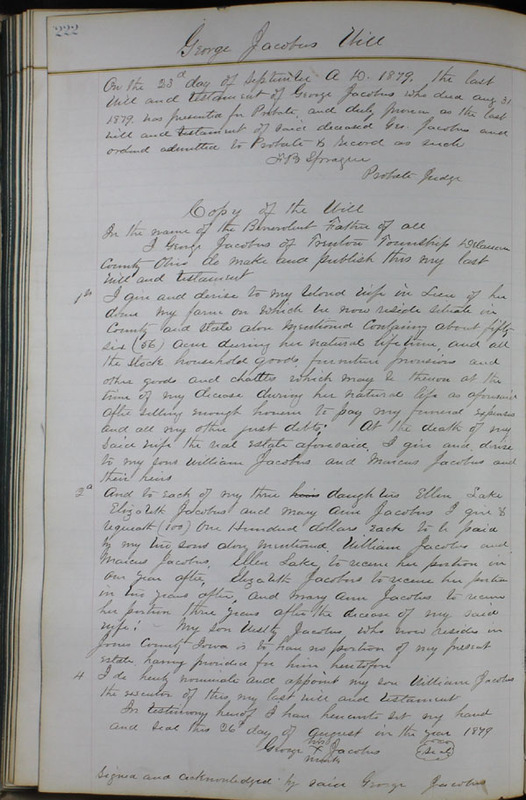 222
George Jacobus Will
On the 23d day of September A.D. 1879, the last
Will and testament of George Jacobus who died Aug 31
1879, was presented for Probate, and duly proven as the last
will and testament of said deceased Geo. Jacobus and
ordered admitted to Probate & record as such
F B Sprague
Probate Judge
Copy of the Will
In the name of the Benevolent Father of all
I George Jacobus of Trenton Township Delaware
County Ohio do make and publish this my last
Will and testament
1st I give and devise to my beloved wife in Lieu of her
dower my farm on which we now reside situate in
County and state above mentioned Containing about fifty
six (56) acres during her natural lifetime, and all
the stock household goods furniture provisions and
other goods and chattles which may be thereon at the
time of my decease during her natural life as aforesaid
after selling enough to pay my funeral expenses
and all my other just debts. At the death of my
said wife the real estate aforesaid, I give and devise
to my sons William Jacobus and Marcus Jacobus and
their heirs
2d And to each of my three heirs daughters Ellen Lake
Elizabeth Jacobus and Mary Ann Jacobus I give &
bequeath (100) One Hundred dollars each to be paid
by my two sons above mentioned, William Jacobus and
Marcus Jacobus. Ellen Lake, to receive her portion in
one year after, Elizabeth Jacobus to receive her portion
in two years after, and Mary Ann Jacobus to receive
her portion three years after the decease of my said
wife. My son Jacobus, who now resides in
Jones County Iowa is to have no portion of my present
estate, having provided for him heretofore
4 I do hereby nominate and appoint my son William Jacobus
the executor of this my last will and testament
In testimony hereof I have hereunto set my hand
and seal this 26th day of August in the year 1879
his
George X Jacobus (Seal)
mark
Signed and acknowledged by said George Jacobus